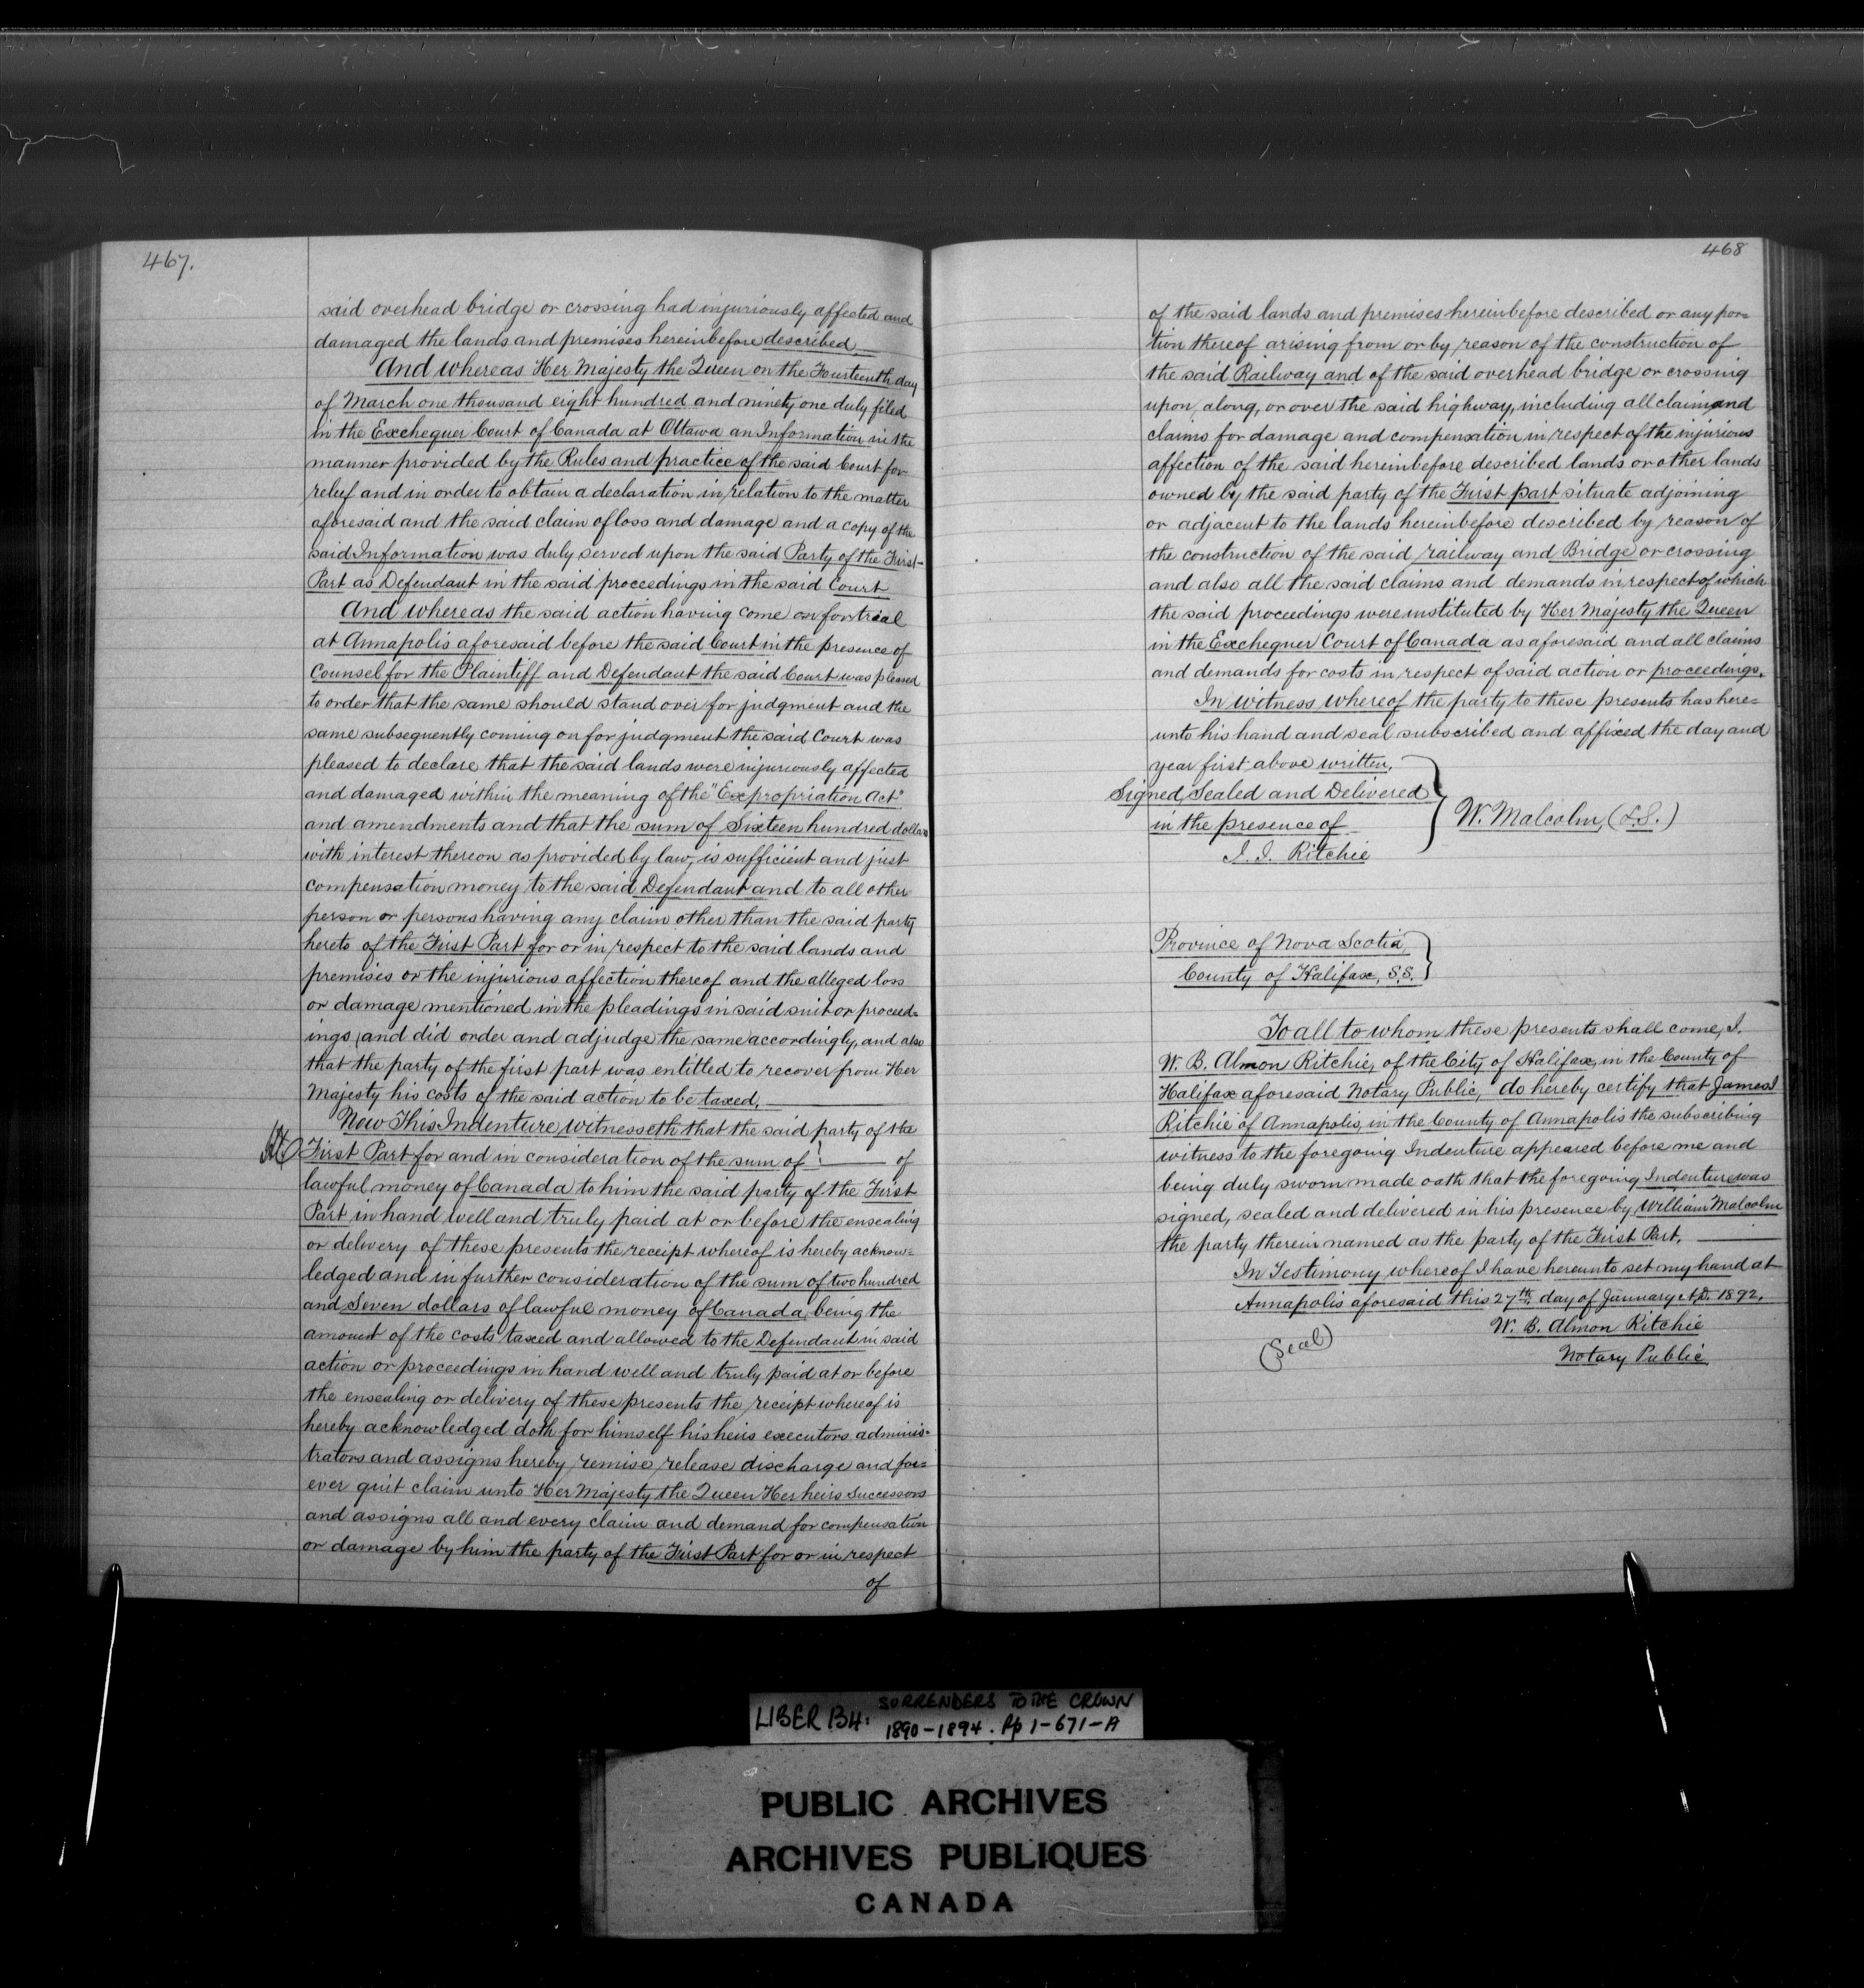 467.
said overhead bridge or crossing had injuriously affected and
damaged the lands and premises hereinbefore described.
And whereas Her Majesty the Queen on the Fourteenth day
of March one thousand eight hundred and ninety one duly filed
in the Exchequer Court of Canada at Ottawa an Information in the
manner provided by the Rules and practice of the said Court for
relief and in order to obtain a declaration in relation to the matter
aforesaid and the said claim of loss and damage and a copy of the
said Information was duly served upon the said Party of the First
Part as Defendant in the said proceedings in the said Court
And whereas the said action having come on for trial
at Annapolis aforesaid before the said Court in the presence of
Counsel for the Plaintiff and Defendant the said Court was pleased
to order that the same should stand over for judgment and the
same subsequently coming on for judgment the said Court was
pleased to declare that the said lands were injuriously affected
and damaged within the meaning of the "Expropriation Act"
and amendments and that the sum of Sixteen hundred dollars
with interest thereon as provided by law, is sufficient and just
compensation money to the said Defendant and to all other
person or persons having any claim other than the said party
hereto of the First Part for or in respect to the said lands and
premises or the injurious affection thereof and the alleged loss
or damage mentioned in the pleadings in said suit or proceed=
ings, and did order and adjudge the same accordingly, and also
that the party of the first part was entitled to recover from Her
Majesty his costs of the said action to be taxed.
Now This Indenture witnesseth that the said party of the
First Part for and in consideration of the sum of of
lawful money of Canada to him the said party of the First
Part in hand well and truly paid at or before the ensealing
or delivery of these presents the receipt whereof is hereby acknow=
ledged and in further consideration of the sum of two hundred
and Seven dollars of lawful money of Canada being the
amount of the costs taxed and allowed to the Defendant in said
action or proceedings in hand well and truly paid at or before
the ensealing or delivery of these presents the receipt whereof is
hereby acknowledged doth for himself his heirs executors adminis=
trators and assigns hereby remise release discharge and for=
ever quit claim unto Her Majesty the Queen Her heirs Successors
and assigns all and every claim and demand for compensation
or damage by him the party of the First Part for or in respect
of
468
of the said lands and premises hereinbefore described or any por=
tion thereof arising from or by reason of the construction of
the said Railway and of the said overhead bridge or crossing
upon, along, or over the said highway, including all claim and
claims for damage and compensation in respect of the injurious
affection of the said hereinbefore described lands or other lands
owned by the said party of the First part situate adjoining
or adjacent to the lands hereinbefore described by reason of
the construction of the said railway and Bridge or crossing
and also all the said claims and demands in respect of which
the said proceedings were instituted by Her Majesty the Queen
in the Exchequer Court of Canada as aforesaid and all claims
and demands for costs in respect of said action or proceedings.
In witness whereof the party to these presents has here=
unto his hand and seal subscribed and affixed the day and
year first above written.
Signed, Sealed and Delivered
in the presence of
J. J. Ritchie
W. Malcolm (L.S.)
Province of Nova Scotia
County of Halifax, S.S.
To all to whom these presents shall come, I.
W. B. Almon Ritchie, of the City of Halifax, in the County of
Halifax aforesaid Notary Public, do hereby certify that James J
Ritchie of Annapolis, in the County of Annapolis the subscribing
witness to the foregoing Indenture appeared before me and
being duly sworn made oath that the foregoing Indenture was
signed, sealed and delivered in his presence by William Malcolm
the party therein named as the party of the First Part.
In Testimony whereof I have hereunto set my hand at
Annapolis aforesaid this 27th day of January A.D. 1892.
W. B. Almon Ritchie
(Seal)
Notary Public
LIBER 134: SURRENDERS TO THE CROWN
1890-1894. Pp 1-671-A
PUBLIC ARCHIVES
ARCHIVES PUBLIQUES
CANADA